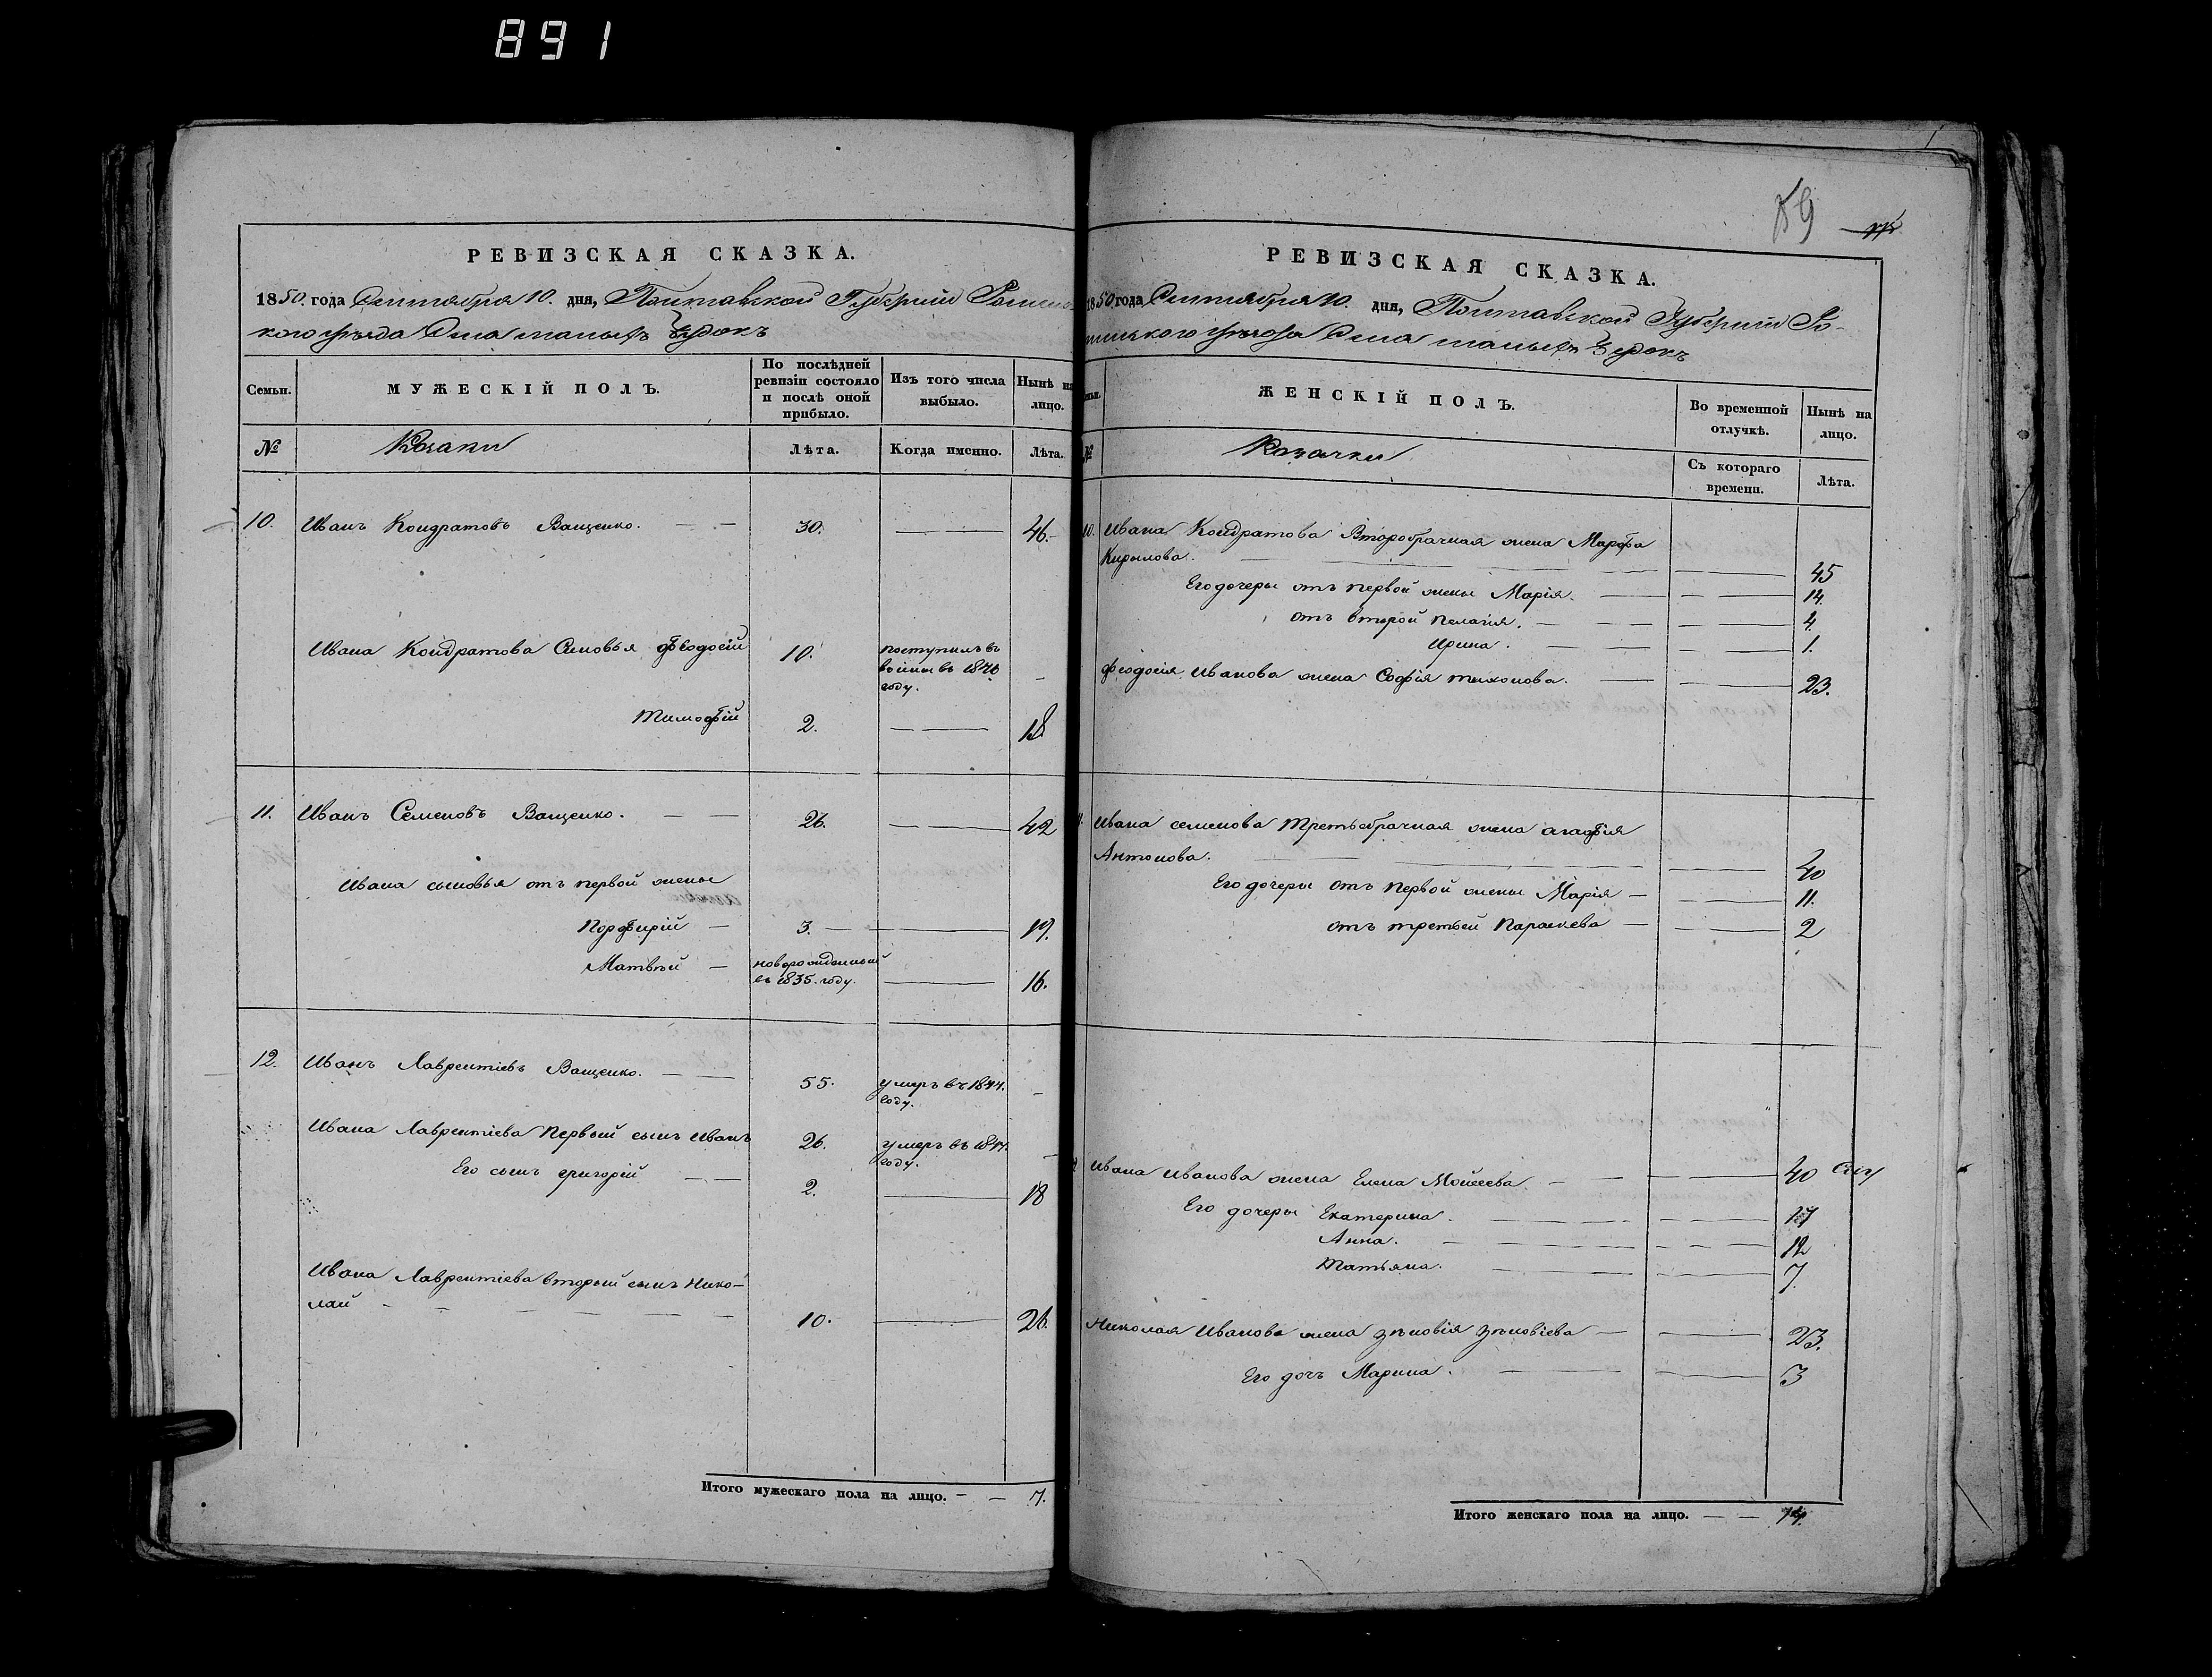 891
РЕВИЗСКАЯ СКАЗКА.
1850. года Сентября 10. дня, Полтавской Губерніи Роменс-
кого уѣзда Села Малыхъ Будокъ
Семьи.
МУЖЕСКІЙ ПОЛЪ.
По послѣдней ревизіи состояло и послѣ оной прибыло.
Изъ того числа выбыло.
Нынѣ на лицо.
№
Козаки
Лѣта.
Когда именно.
Лѣта.
10. Иванъ Кондратовъ Ващенко. 30. 46.
Ивана Кондратова Сыновья Ѳеодосій 10. поступилъ въ
въ 1840
году.
Тимоѳій 2. 18
11. Иванъ Семеновъ Ващенко. 26. 42
Ивана сыновья отъ первой жены
Порфирій 3. 19.
Матвѣй новорожденный
въ 1835. году. 16.
12. Иванъ Лаврентіевъ Ващенко. 55. умеръ въ 1844.
году.
Ивана Лаврентіева Первый сынъ Иванъ 26. умеръ въ 1847.
году.
Его сынъ Григорій 2. 18
Ивана Лаврентіева вторый сынъ Нико-
лай 10. 26.
Итого мужескаго пола на лицо. 7.
89
РЕВИЗСКАЯ СКАЗКА.
1850 года Сентября 10. дня, Полтавской Губерніи Ро-
менского уѣзда Села Малыхъ Будокъ
Семьи.
ЖЕНСКІЙ ПОЛЪ.
Во временной отлучкѣ.
Нынѣ на лицо.
№
Козачки
Съ котораго времени.
Лѣта.
10. Ивана Кондратова Второбрачная жена Марфа
Кирылова. 45
Его дочеры отъ первой жены Марія. 14.
отъ второй Пелагія. 4.
Ирина. 1.
Ѳеодосія Иванова жена Софія Тихонова. 23.
11. Ивана Семенова Третьебрачная жена Агафія
Антонова. 40
Его дочеры отъ первой жены Марія 11.
отъ третьей Параскева 2
12 Ивана Иванова жена Елена Мойсеева. 40
Его дочеры Екатерина. 17
Анна. 12
Татьяна. 7.
Николая Иванова жена Зѣновія Зѣновіева 23.
Его дочь Марина. 3
Итого женскаго пола на лицо. 14.